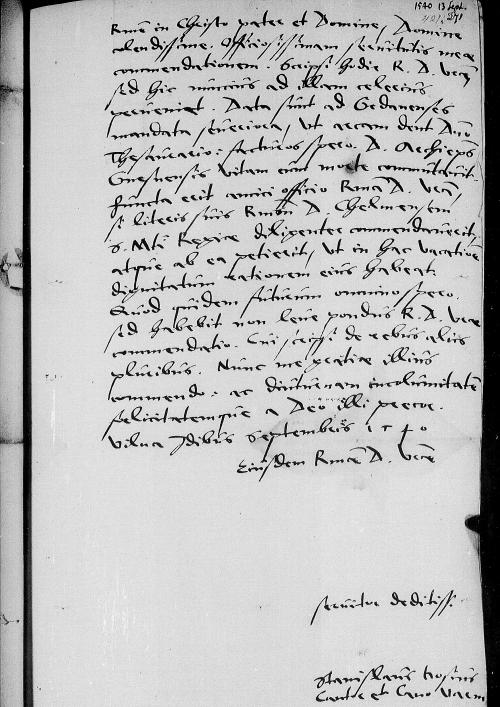 1540 13 Sept.
271
Rme in Christo pater et Domine, Domine
colendissime. Officiosissimam servitutis meae
commendationem. Scripsi hodie R. D. Vrae,
sed hic nuncius ad illam celerius
perveniet. Data sunt ad Gedanenses
mandata severiora, ut arcam dent Dno
Thesaurario: facturos spero. D. Archieps
Gnesnensis vitam cum morte commutavit.
functa erit amici officio Rma D. Vra,
si literis suis Rmum D. Chelmensem
S. Mti Regiae diligenter commendaverit,
atque ab ea petierit, ut in hac vacatione
dignitatum rationem eius habeat.
Quod quidem futurum omnino spero.
sed habebit non leve pondus R. D. Vrae
commendatio. Cui scripsi de rebus aliis
pluribus. Nunc me gratiae illius
commendo: ac diuturnam incolumitatem
felicitatemque a Deo illi precor.
Vilna Idibus Septembris 1540
Eiusdem Rmae D. Vrae
servitor deditiss.
Stanislaus Hosius
Cantor et Cano Varm